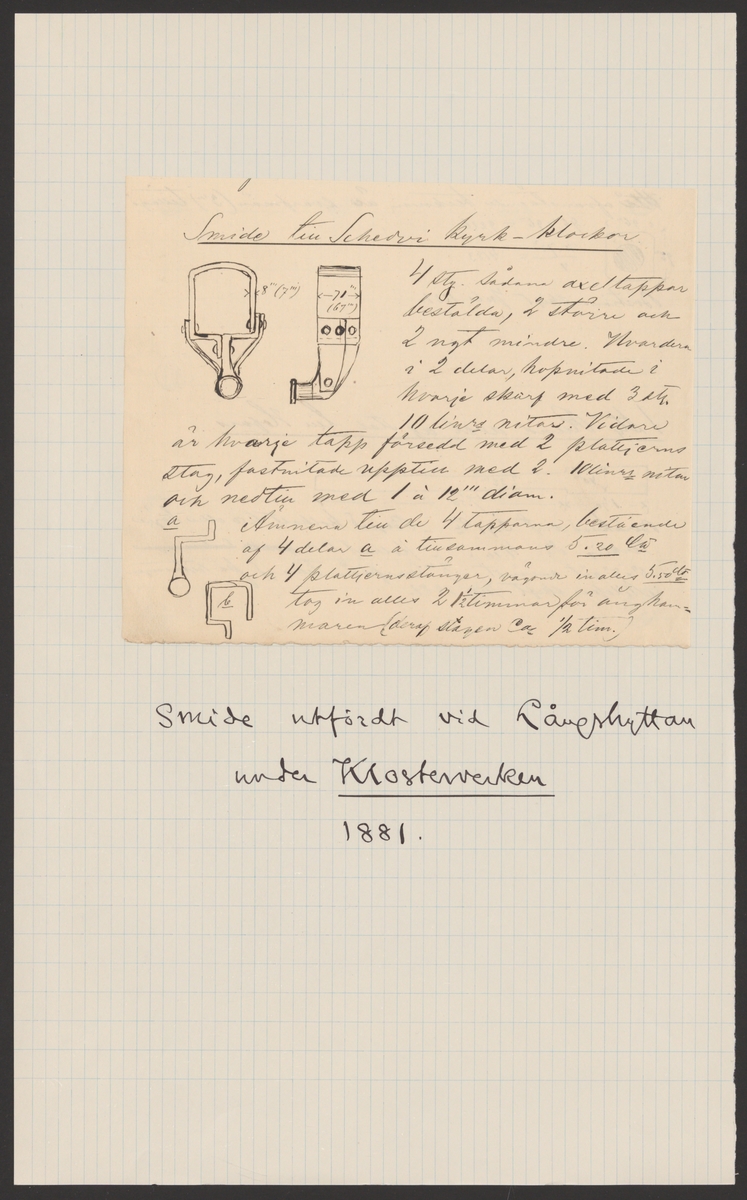 Smide till Schedvi kyrk-klockor
8''' (7''')
71'''
(67''')
4 stg. sådana axeltappar
bestälda, 2 större och
2 ngt mindre. Hvardera
i 2 delar, hopnitade i
hvarje skarf med 3 st.
10 liniers nitar. Vidare
är hvarje tapp försedd med 2 plattjerns
stag, fastnitade upptill med 2. 10 liniers nitar
och nedtill med 1 à 12''' diam.
a
Ämnena till de 4 tapparna, bestående
af 4 delar a à tillsammans 5.20 Ctr
och 4 plattjernsstänger, vägande in alles 5.50
b
tog in alles 2 1/2 timmar för ångham=
maren (deraf stagen ca 1/2 tim.)
Smide utfördt vid Långshyttan
under Klosterverken
1881.